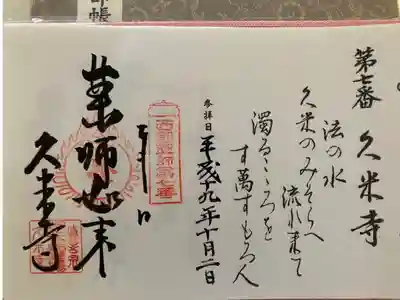 第七番 久米寺
法の水
久米のみそらへ
流れ来て
濁るこゝろを
す萬すもろ人
参拝日
平成十九年十月二日
西国薬師第七番
薬師如来
久米寺